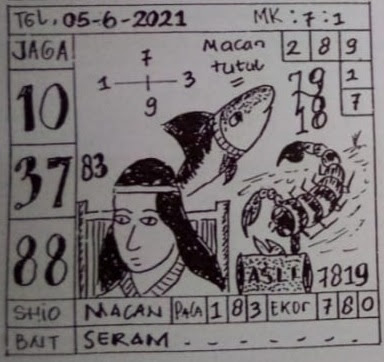 TGL. 05-6-2021 MK : 7 : 1
JAGA
10
37
88
7
1 3
9
Macan
tutul
2 8 9
1
7
79
18
83
ASLI 7819
SHIO MACAN PALA 1 8 3 EKOr 7 8 0
BAIT SERAM - - - - - -